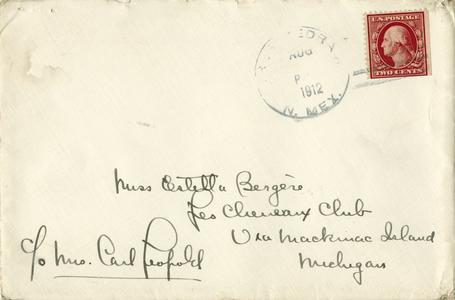 U.S. POSTAGE
TWO CENTS
AUG
P
1912
N. MEX.
Miss Estella Bergère
Les Cheneaux Club
Via Mackinac Island
Michigan
C/o Mrs. Carl Leopold